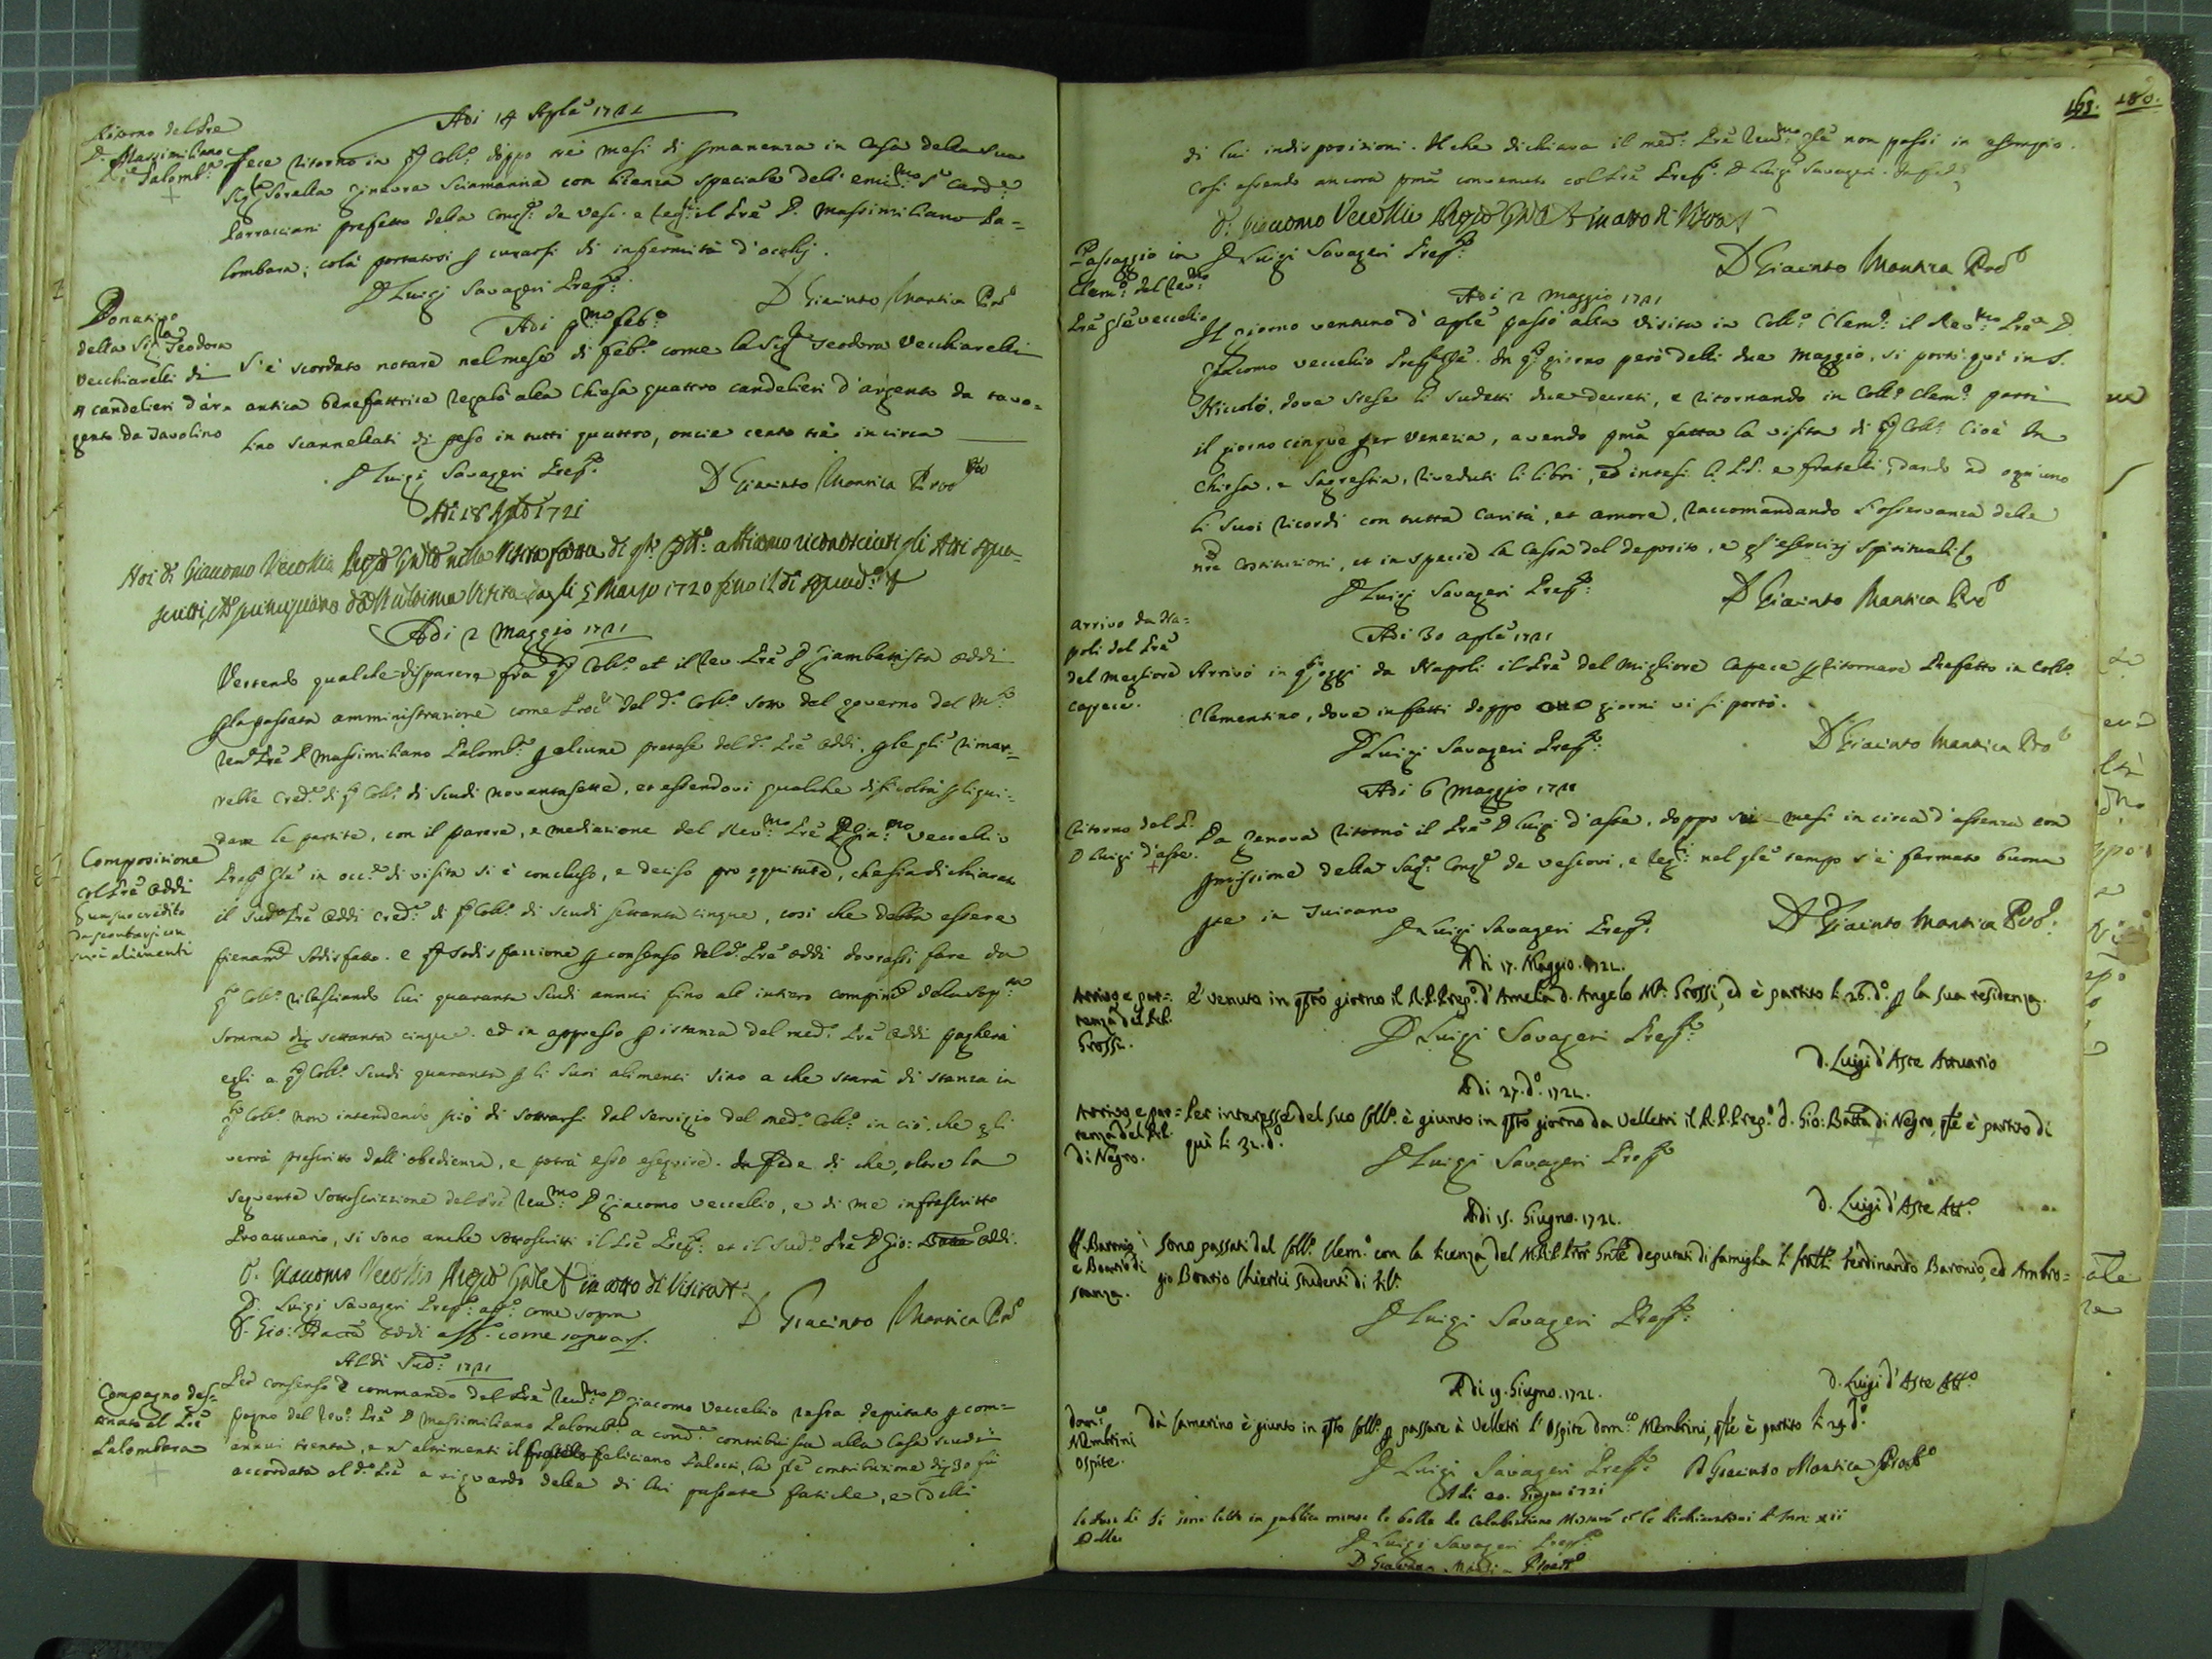 Adi 14 Aple 1721
Ritorno del Pre
D. Massimiliano
Palomb.a
Fece ritorno in q.o Coll.o doppo trè mesi di pmanenza in Casa della sua
Sig.a Sorella Ginevra Sciamanna con licenza speciale dell' emi.mo S.r Card.e
Parracciani prefetto della Cong.e de Vesc. e Reg.ri il Pre D. Massimiliano Pa=
lombara; colà portatosi p curarsi di infermità d'occhj.
D Luigi Savageri Prep.to
D Giacinto Mantica
Adi p.mo Feb.o
Donativo
della Sig.ra Teodora
Vecchiarelli di
4 candelieri d'ar=
gento da Tavolino
S'è scordato notare nel mese di Feb.o come la Sig.ra Teodora Vecchiarelli
antica Benefattrice regalò alla Chiesa quattro candelieri d'argento da tavo=
lino scannellati di peso in tutti quattro, oncie cento trè in circa
D Luigi Savageri Prep.to
D Giacinto Mantica
Adi 18 Aple 1721
Noi D. Giacomo Vecellio Prep.to Gnle nella Visita fatta di q.to Coll.o abbiamo riconosciuti gli Atti sopra=
scritti, dall'ultima Visita dagli 5 Marzo 1720 fino il dì sopradº
Adi 2 Maggio 1721
Vertendo qualche disparere fra q.o Coll.o et il Rev Pre D Giambattista Oddi
p la passata amministrazione come Proc.re del d.o Coll.o sotto del governo del M.to
Rev.do Pre D Massimiliano Palomb.a p alcune pretese del d.o Pre Oddi, p le qli rimar=
rebbe Cred.re di q.o Coll.o di Scudi novantasette, et essendovi qualche dificoltà p liqui=
dare le partite, con il parere, e mediazione del Rev.mo Pre D Gia.mo Vecellio
Composizione
col Pre Oddi
p un suo credito
da scontarsi con
suoi alimenti
Prep.to Gle in occ.ne di visita si è concluso, e deciso pro equitate, che sia dichiarato
il Sud.o Pre Oddi Cred.re di q.o Coll.o di Scudi settanta cinque, così che debba essere
pienam.te sodisfatto. e q.a sodisfazzione p consenso del d.o Pre Oddi dovrassi fare da
q.o Coll.o rilasciando lui quaranta Scudi annui fino all'intiero compim.to della sop.ta
somma di settanta cinque. ed in appresso p istanza del med.o Pre Oddi pagherà
egli a q.o Coll.o Scudi quaranta p li suoi alimenti sino a che starà di stanza in
q.o Coll.o non intendendo più di sottrarsi dal servizio del med.o Coll.o in ciò, che gli
verrà prescritto dall'obedienza, e potrà esso eseguire. In Fede di che, oltre la
seguente sottoscrizzione del Pre Rev.mo D Giacomo Vecellio, e di me infrascritto
Proattuario, si sono anche sottoscritti il Pre Prep.to et il Sud.o Pre D Gio: Batta Oddi.
D. Giacomo Vecellio Prep.to Gnle in atto di Visita
D. Luigi Savageri Prep.to aff.o come sopra
D. Gio: Batta Oddi aff.o come sopra
D Giacinto Mantica
Al dì Sud.o 1721
Compagno des=
tinato al Pre
Palombara
Per consenso e commando del Pre Rev.mo D Giacomo Vecellio resta deputato p com=
pagno del Rev.o Pre D Massimiliano Palomb.a a cond.ne contribuisca alla Casa scudi
annui trenta, e n altrimenti il Feliciano Palocci, la qle contribuzione di 30 fù
accordata al d.o Pre a riguardo delle di lui passate fatiche, e delli
163. 180.
di lui indisposizioni. Il che dichiara il med.o Pre Rev.mo Gle non passi in essempio.
Così essendo ancora pma convenuto col Pre Prep.to D Luigi Savageri. In fede
D. Giacomo Vecellio Prep.to Gnle in atto di Visita
D Luigi Savageri Prep.to
D Giacinto Mantica
Passaggio in
Clem.o del Rev.mo
Pre Gle Vecellio
Adi 2 Maggio 1721
Il giorno ventuno d'aple passò alla visita in Coll.o Clem.o il Rev.mo Pre D.
Giacomo Vecellio Prep.to Gle. In q.o giorno però delli due Maggio, si portò quì in S.
Niccolò, dove stese li sudetti due decreti, e ritornando in Coll.o Clem.o partì
il giorno cinque per Venezia, avendo pma fatta la visita di q.o Coll.o Cioè In
Chiesa, e Sagrestia, riveduti li libri, ed intesi li PP. e fratelli, dando ad ogn'uno
li suoi ricordi con tutta carità, et amore, raccomandando l'osservanza delle
nre Costituzioni, et in specie la Cassa del deposito, e gl'esercizj spirituali
D Luigi Savageri Prep.to
D Giacinto Mantica
Arrivo da Na=
poli del Pre
del Megliore
Capece.
Adi 30 aple 1721
Arrivò in q.o oggi da Napoli il Pre del Migliore Capece p ritornare Prefetto in Coll.o
Clementino, dove infatti doppo otto giorni vi si portò.
D Luigi Savageri Prep.to
D Giacinto Mantica
Adi 6 Maggio 1721
Ritorno del P.
D Luigi d'Aste.
Da Genova ritornò il Pre D Luigi d'Aste, doppo sei mesi in circa d'assenza con
pmissione della Sag.a Cong.e de Vescovi, e Reg.ri nel qle tempo s'è fermato buona
pte in
D Luigi Savageri Prep.to
D Giacinto Mantica
Adi 17. Maggio. 1721.
Arrivo e par=
tenza del P.
Grossi.
è venuto in qsto giorno il M.R.P. Prep.o d'Amelia d. Angelo M.a Grossi, ed è partito li 26. d.o p la sua residenza.
D Luigi Savageri Prep.to
d. Luigi d'Aste Attuario
Adi 27. d.o 1721.
Arrivo e par=
tenza del P.
di Negro.
Per interesse del suo Coll.o è giunto in qsto giorno da Velletri il M.R.P. Prep.o d. Gio: Batta di Negro, qle è partito di
quì li 31. d.o
D Luigi Savageri Prep.to
d. Luigi d'Aste Att.o
Adi 15. Giugno. 1721.
ff. Baronio
e Boario di
stanza.
Sono passati dal Coll.o Clem.o con la licenza del M.R.P. Gnle deputati di famiglia li fratti Ferdinando Baronio, ed Ambro=
gio Boario Chierici studenti di
D Luigi Savageri Prep.to
d. Luigi d'Aste Att.o
Adi 19. Giugno. 1721.
Dom.co
Membrini
Ospite.
Dà Camerino è giunto in qsto Coll.o p passare à Velletri l'Ospite Dom.co Membrini, qle è partito li 29. d.o
D Luigi Savageri Prep.to
D Giacinto Mantica
Adi 20. Giugno 1721
Si sono lette in publica mensa le bolle de Celebratione Missarum
D Luigi Savageri Prep.to